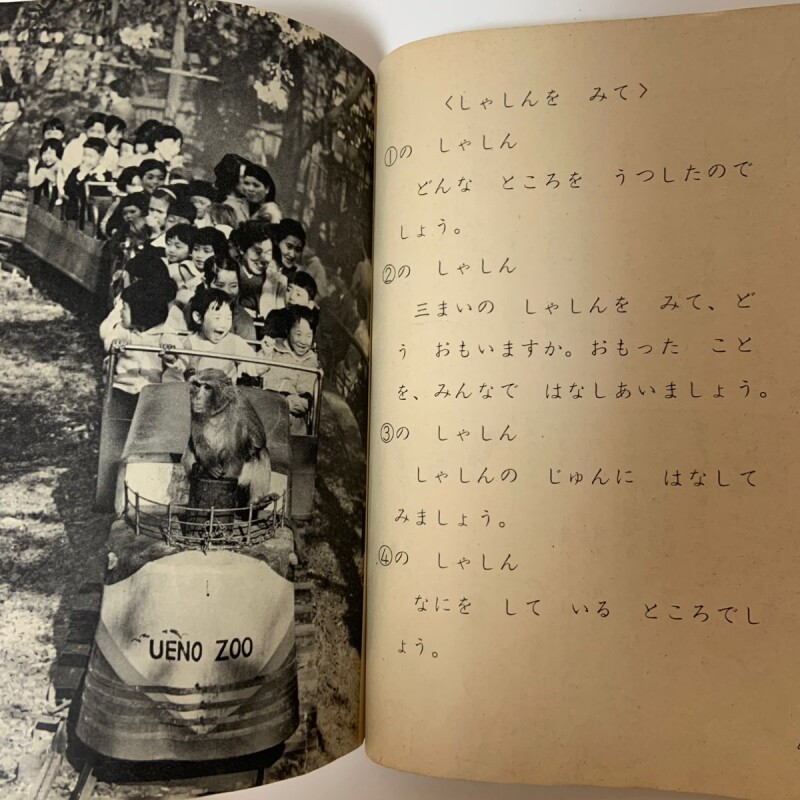 UENO ZOO
〈しゃしんを　みて〉
①の　しゃしん
どんな　ところを　うつしたので
しょう。
②の　しゃしん
三まいの　しゃしんを　みて、ど
う　おもいますか。おもった　こと
を、みんなで　はなしあいましょう。
③の　しゃしん
しゃしんの　じゅんに　はなして
みましょう。
④の　しゃしん
なにを　して　いる　ところでし
ょう。